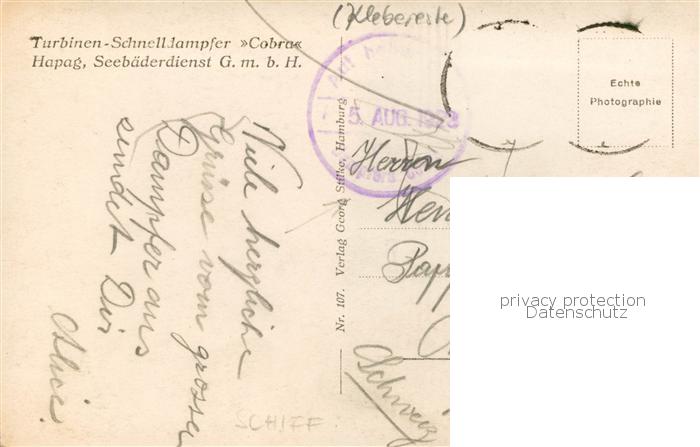 (Klebereste)
Turbinen-Schnelldampfer »Cobra«
Hapag, Seebäderdienst G. m. b. H.
Echte
Photographie
5. AUG. 19
Viele herzliche
Grüsse vom grossen
Dampfer aus
sendet Dir
Alice.
Nr. 107. Verlag Georg Stilke, Hamburg
Herrn
Schweiz
SCHIFF
privacy protection
Datenschutz